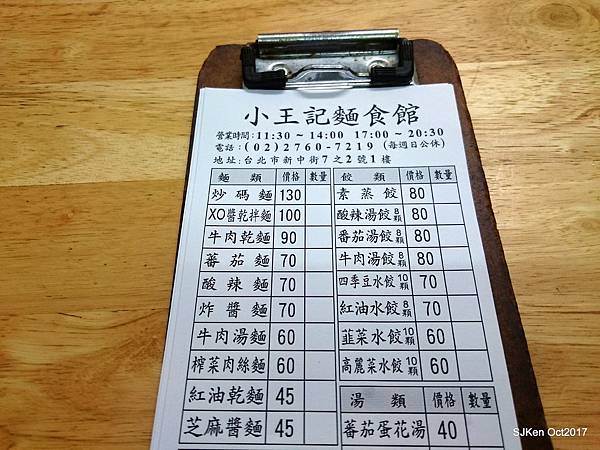 小王記麵食館
營業時間:11:30 ~ 14:00 17:00 ~ 20:30
電話:(02)2760-7219 (每週日公休)
地址:台北市新中街7之2號1樓
麵類 價格 數量
炒碼麵 130
XO醬乾拌麵 100
牛肉乾麵 90
蕃茄麵 70
酸辣麵 70
炸醬麵 70
牛肉湯麵 60
榨菜肉絲麵 60
紅油乾麵 45
芝麻醬麵 45
餃類 價格 數量
素蒸餃 80
酸辣湯餃8顆 80
番茄湯餃8顆 80
牛肉湯餃8顆 80
四季豆水餃10顆 70
紅油水餃8顆 70
韮菜水餃10顆 60
高麗菜水餃10顆 60
湯類 價格 數量
蕃茄蛋花湯 40
SJKen Oct2017